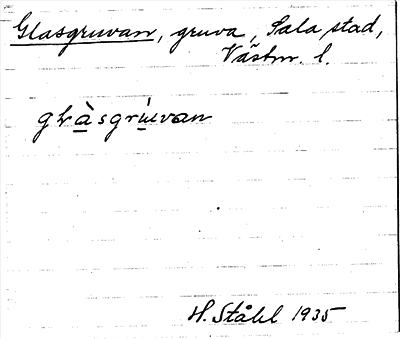 Glasgruvan, gruva, Sala stad,
Västm. l.
glàsgrúvan
H. Ståhl 1935